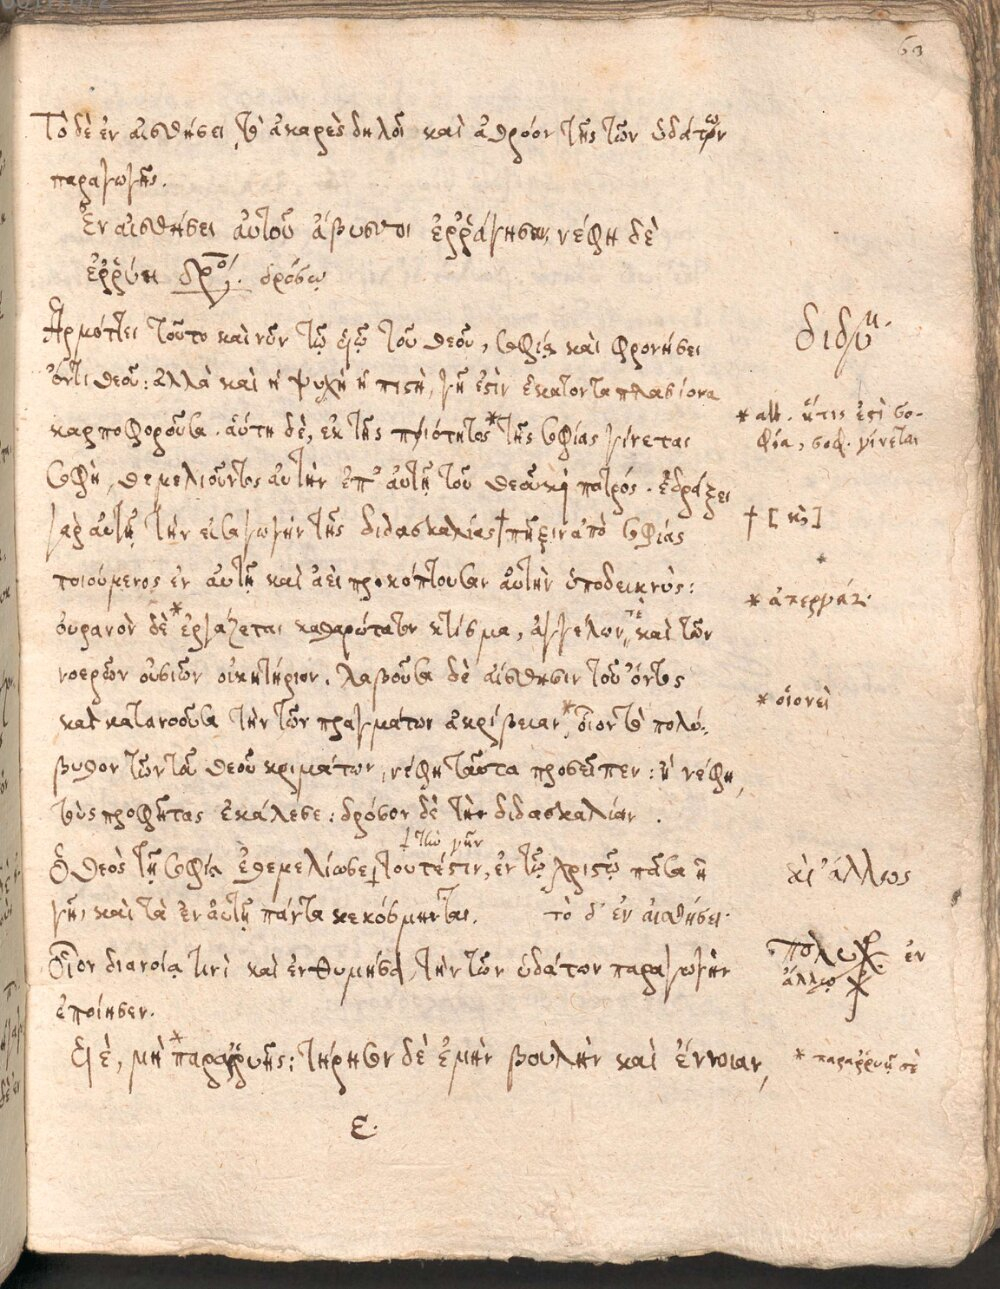 63
Τὸ δὲ ἐν αἰσθήσει, τὸ ἀκαρὲς δηλοῖ καὶ ἀθρόον τῆς τῶν ὑδάτων
παραγωγῆς.
Ἐν αἰσθήσει αὐτοῦ ἄβυσσοι ἐῤῥάγησαν, νέφη δὲ
ἐῤῥύη δρόσῳ
Ἁρμόττει τοῦτο καὶ νῦν τῷ υἱῷ τοῦ θεοῦ, σοφίᾳ καὶ φρονήσει
ὄντι θεοῦ: ἀλλὰ καὶ ἡ ψυχὴ ἡ πιστὴ, γῆ ἐστὶν ἑκατονταπλασίονα
καρποφοροῦσα. αὕτη δὲ, ἐκ τῆς ποιότητος* τῆς σοφίας γίνεται
σοφὴ, θεμελιοῦντος αὐτὴν ἐπ' αὐτῇ τοῦ θεοῦ καὶ πατρός. ἑδράζει
γὰρ αὐτῇ τὴν εἰσαγωγὴν τῆς διδασκαλίας † πῆξιν ἀπὸ σοφίας
ποιούμενος ἐν αὐτῇ καὶ ἀεὶ προκόπτουσαν αὐτὴν ὑποδεικνὺς:
οὐρανὸν δὲ *ἐργάζεται καθαρώτατον κτίσμα, ἀγγέλων τὲ καὶ τῶν
νοερῶν οὐσιῶν οἰκητήριον. λαβοῦσα δὲ αἴσθησιν τοῦ ὄντος
καὶ κατανοοῦσα τὴν τῶν πραγμάτων ἀκρίβειαν, *οἷον τὸ πολύ-
βυθον τῶν τοῦ θεοῦ κριμάτων, νέφη ταῦτα προσεῖπεν: ἢ νέφη
τοὺς προφήτας ἐκάλεσε: δρόσον δὲ τὴν διδασκαλίαν.
† τὴν γῆν
Ὁ θεὸς τῇ σοφίᾳ ἐθεμελίωσε † τουτέστιν, ἐν τῷ χριστῷ πᾶσα ἡ
γῆ, καὶ τὰ ἐν αὐτῇ πάντα κεκόσμηται. τὸ δ' ἐν αἰσθήσει.
Οἷον διανοίᾳ τινὶ καὶ ἐνθυμήσει, τὴν τῶν ὑδάτων παραγωγὴν
ἐποίησεν.
Υἱὲ, μὴ *παραῤῥυῇς: τήρησον δὲ ἐμὴν βουλὴν καὶ ἔννοιαν,
ε.
διδύμ.
* alt. ἥτις ἐστὶ σο-
φία, σοφ. γίνεται
† [καὶ]
* ἀπεργάζ.
* οἱονεὶ
καὶ ἄλλως
Πολυχ. ἐν
ἄλλῳ
* παραῤῥυῇ σὲ